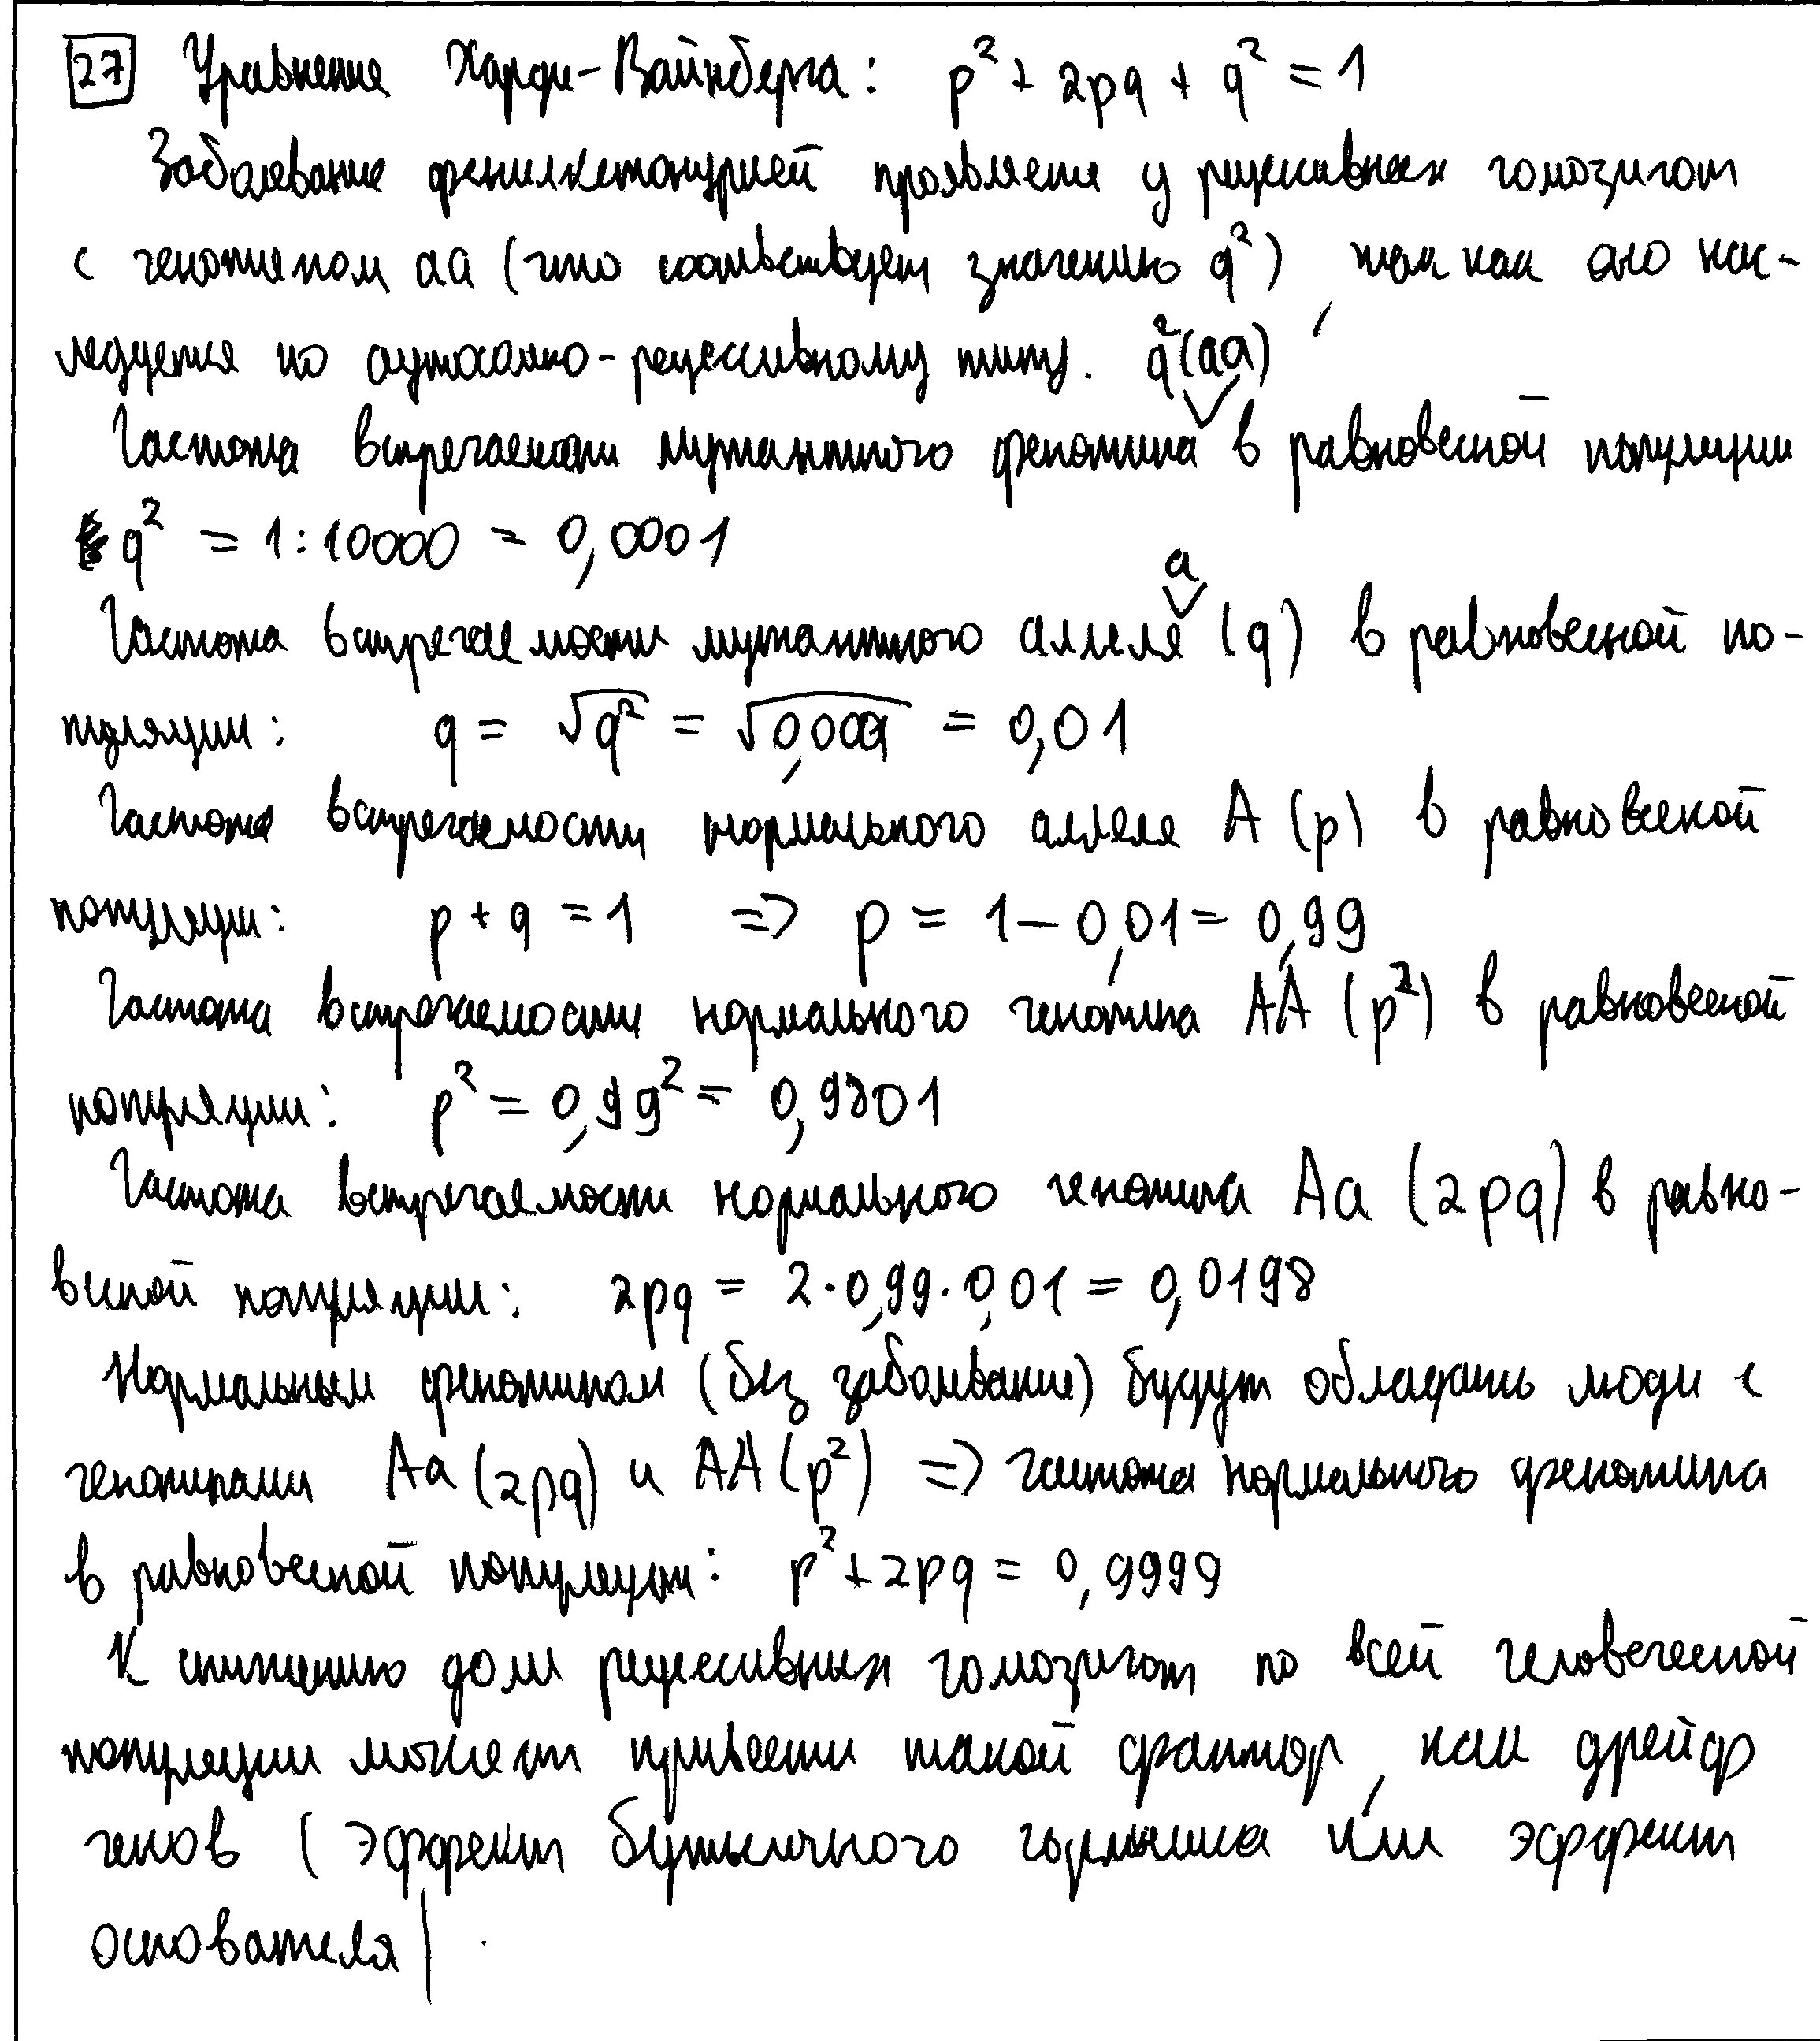 27 Уравнение Харди-Вайнберга: p² + 2pq + q² = 1
Заболевание фенилкетонурией проявляется у рецессивных гомозигот
с генотипом aa (что соответствует значению q²), так как оно нас-
ледуется по аутосомно-рецессивному типу. q²(aa)
Частота встречаемости мутантного фенотипа в равновесной популяции
q² = 1:10000 = 0,0001
a
Частота встречаемости мутантного аллеля (q) в равновесной по-
пуляции: q = √q² = √0,0001 = 0,01
Частота встречаемости нормального аллеля A (p) в равновесной
популяции: p + q = 1 => p = 1 - 0,01 = 0,99
Частота встречаемости нормального генотипа AA (p²) в равновесной
популяции: p² = 0,99² = 0,9801
Частота встречаемости нормального генотипа Aa (2pq) в равно-
весной популяции: 2pq = 2·0,99·0,01 = 0,0198
Нормальным фенотипом (без заболевания) будут обладать люди с
генотипами Aa (2pq) и AA (p²) => частота нормального фенотипа
в равновесной популяции: p² + 2pq = 0,9999
К снижению доли рецессивных гомозигот по всей человеческой
популяции может привести такой фактор, как дрейф
генов (эффект бутылочного горлышка или эффект
основателя)